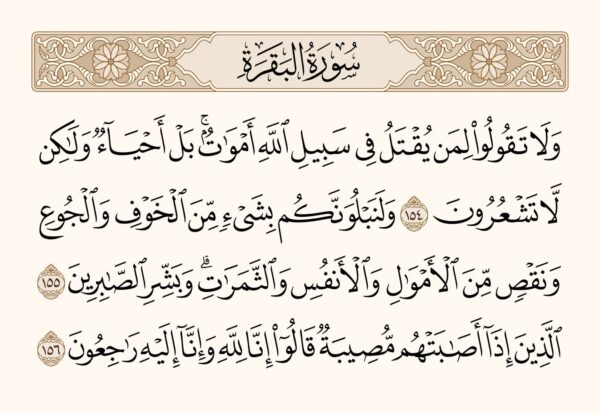 سُورَةُ البَقَرَةِ
وَلَا تَقُولُوا۟ لِمَن يُقْتَلُ فِى سَبِيلِ ٱللَّهِ أَمْوَٰتٌۢ ۚ بَلْ أَحْيَآءٌ وَلَٰكِن
لَّا تَشْعُرُونَ ١٥٤ وَلَنَبْلُوَنَّكُم بِشَىْءٍ مِّنَ ٱلْخَوْفِ وَٱلْجُوعِ
وَنَقْصٍ مِّنَ ٱلْأَمْوَٰلِ وَٱلْأَنفُسِ وَٱلثَّمَرَٰتِ ۗ وَبَشِّرِ ٱلصَّٰبِرِينَ ١٥٥
ٱلَّذِينَ إِذَآ أَصَٰبَتْهُم مُّصِيبَةٌ قَالُوٓا۟ إِنَّا لِلَّهِ وَإِنَّآ إِلَيْهِ رَٰجِعُونَ ١٥٦